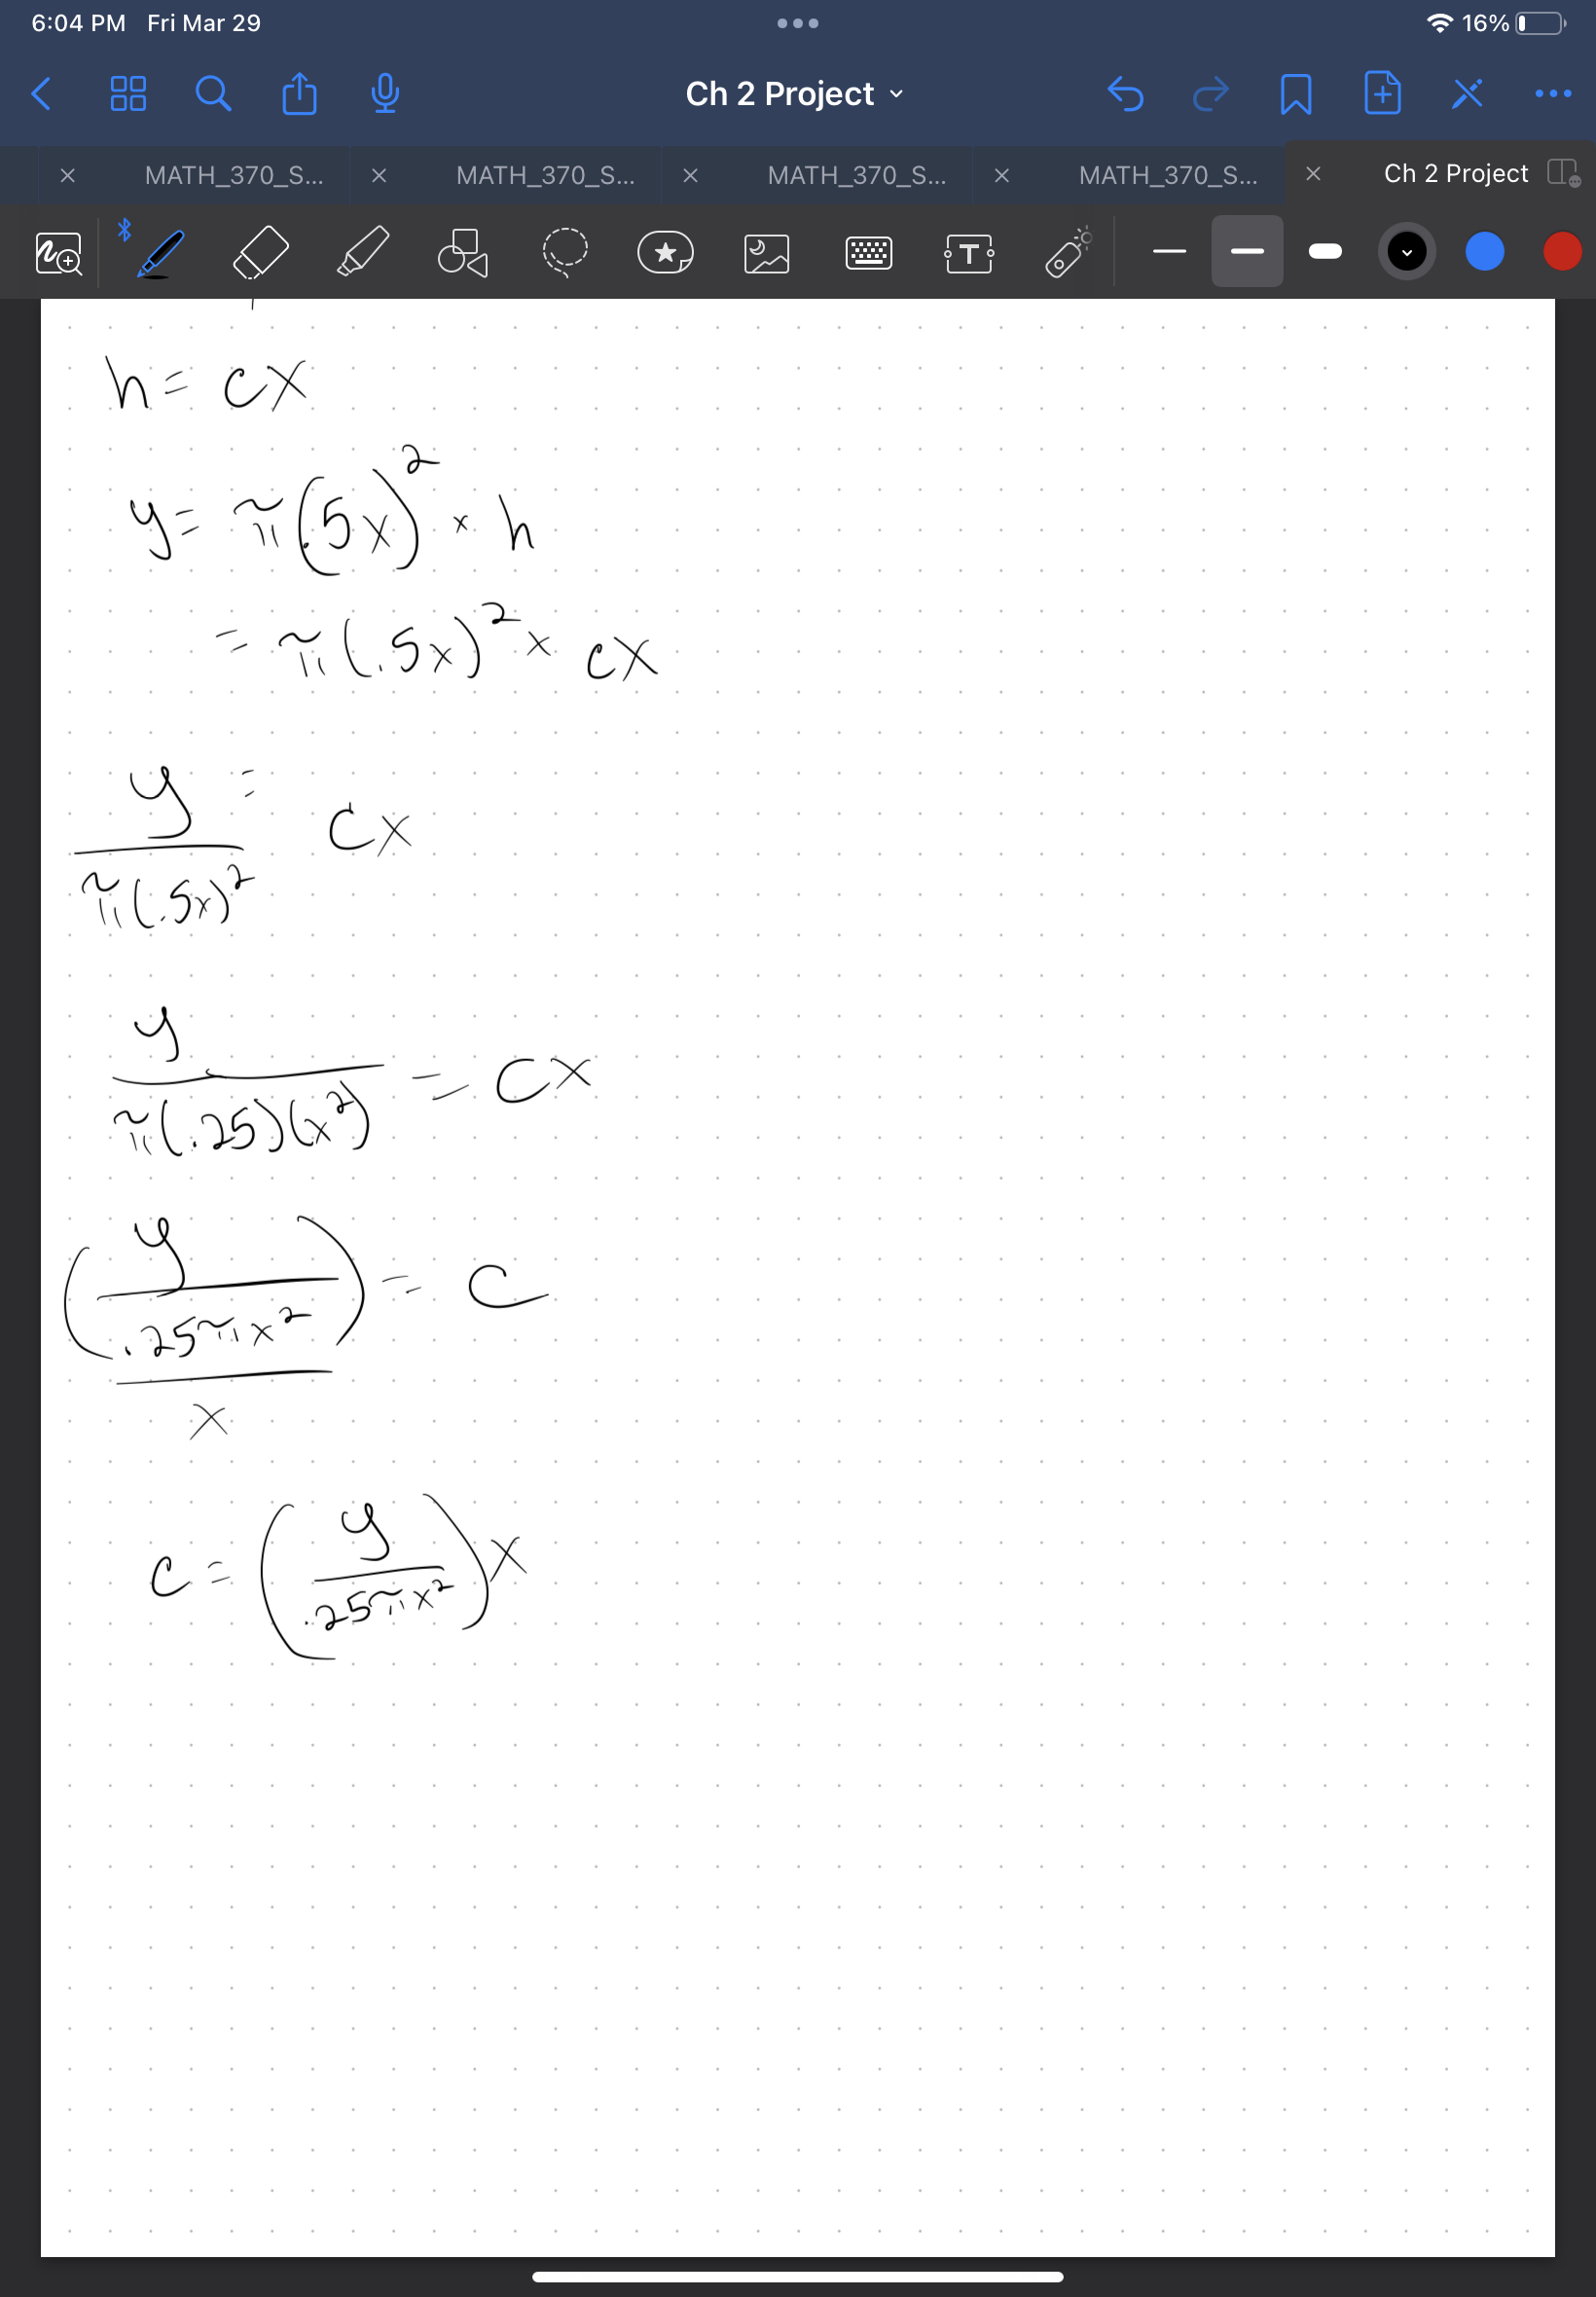 6:04 PM Fri Mar 29 16%
Ch 2 Project
MATH_370_S... MATH_370_S... MATH_370_S... MATH_370_S... Ch 2 Project
T
h = cx
y = π(.5x)² × h
= π(.5x)² × cx
y/π(.5x)² = cx
y/π(.25)(x²) = cx
(y/.25πx²)/x = c
c = (y/.25πx²)x